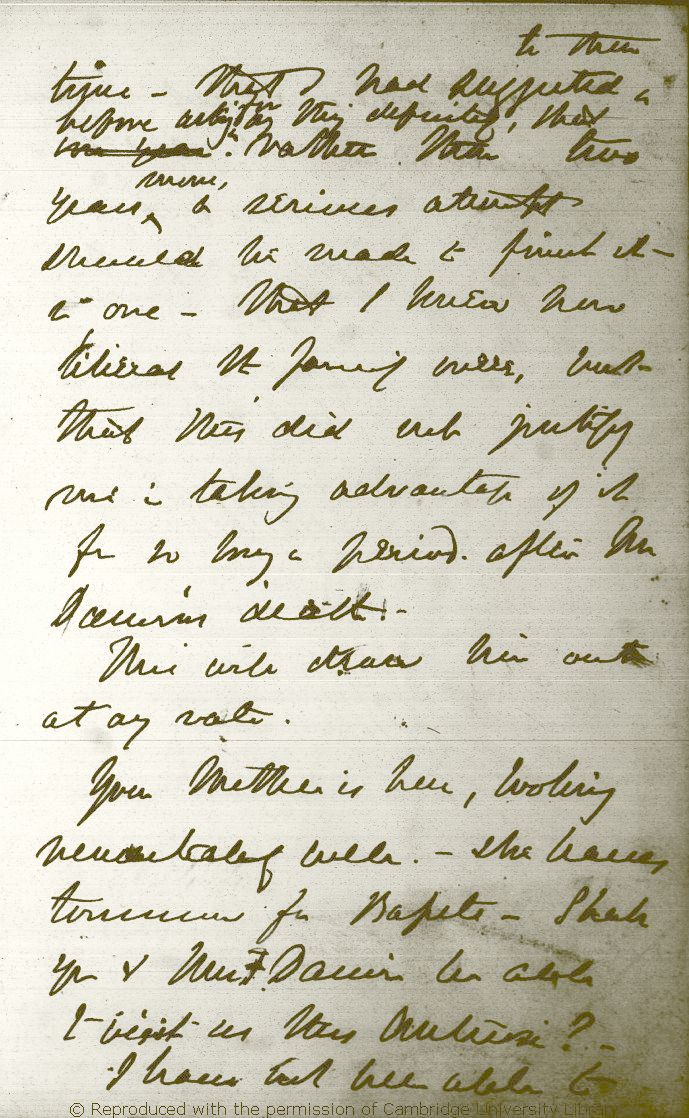 to them
time – that I had suggested,
before asking for any thing definitely, that
one year rather than two
years more, a serious attempt
should be made to finish it
in one – that I knew how
liberal the family were, but
that this did not justify
me in taking advantage of it
for so long a period after Mr
Darwin's death. –
This will draw him out
at any rate.
Your Mother is here, looking
remarkably well. – She leaves
tomorrow for – Shall
you & Mrs F. Darwin be able
to visit us this Autumn? –
I have not been able to
© Reproduced with the permission of Cambridge University Library